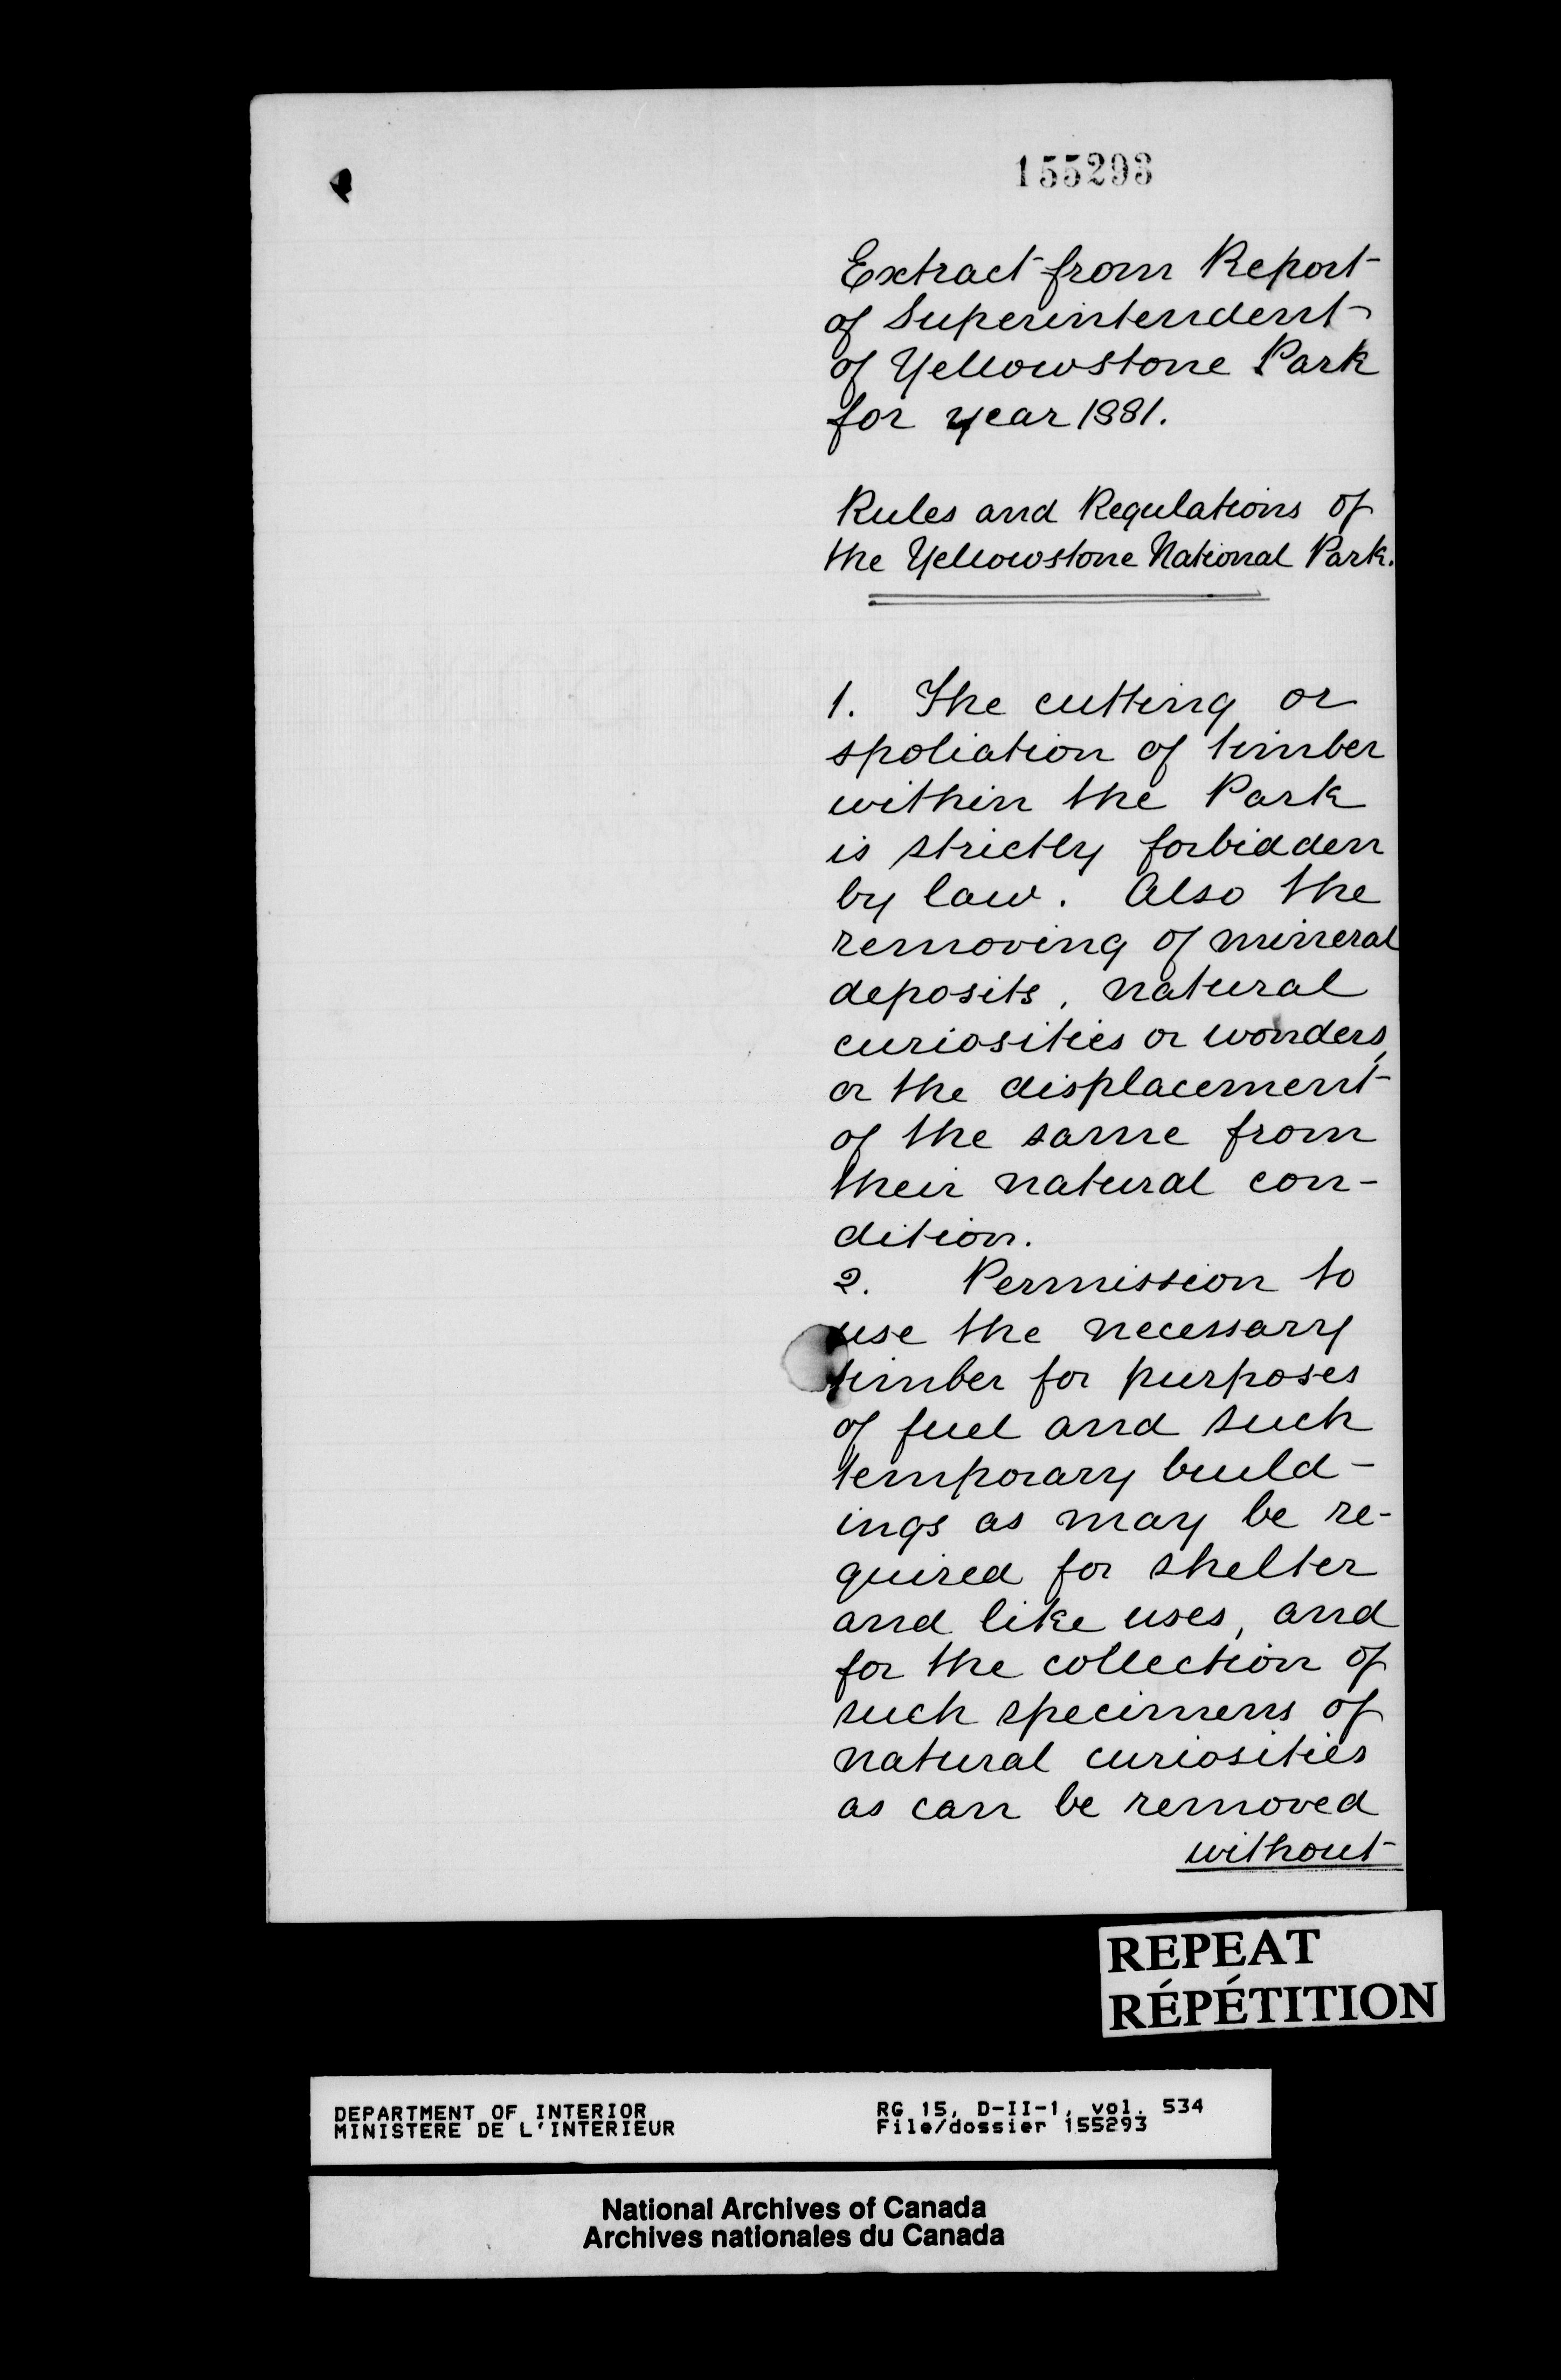 155293
Extract from Report
of Superintendent
of Yellowstone Park
for year 1881.
Rules and Regulations of
the Yellowstone National Park.
1. The cutting or
spoliation of timber
within the Park
is strictly forbidden
by law. Also the
removing of mineral
deposits, natural
curiosities or wonders,
or the displacement
of the same from
their natural con-
dition.
2. Permission to
use the necessary
timber for purposes
of fuel and such
temporary build-
ings as may be re-
quired for shelter
and like uses, and
for the collection of
such specimens of
natural curiosities
as can be removed
without
REPEAT
RÉPÉTITION
DEPARTMENT OF INTERIOR
MINISTERE DE L'INTERIEUR
RG 15, D-II-1, vol. 534
File/dossier 155293
National Archives of Canada
Archives nationales du Canada